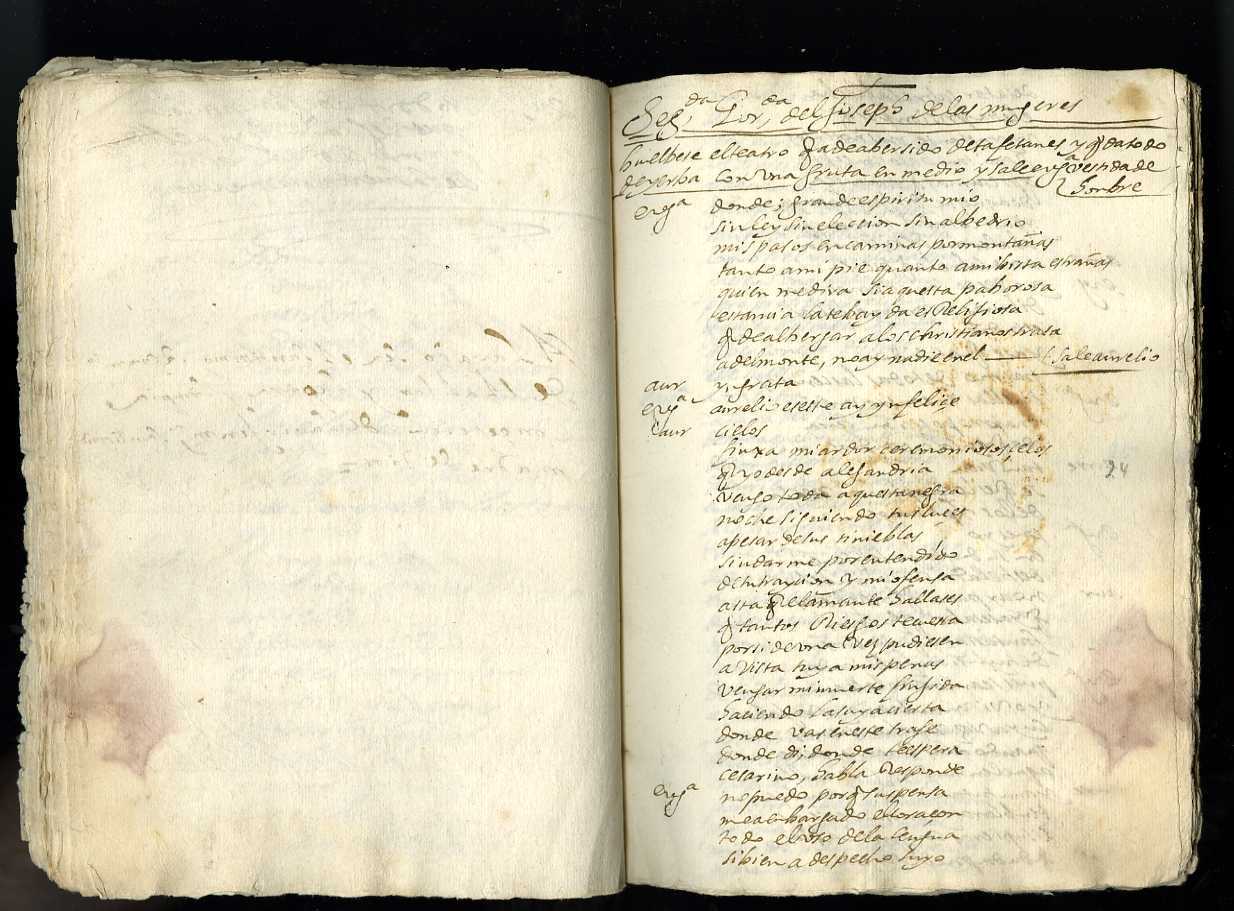 Seg.da Jor.da del Joseph de las mugeres
buelbese el teatro q a de aber sido de tafetanes y qda todo
de yerba con una gruta en medio y sale eugª vestida de
honbre
eugª donde, grande espiritu mio
sin ley sin eleccion sin albedrio
mis pasos encaminas por montañas
tanto a mi pie quanto a mi bista estrañas
quien me dira si aquesta paborosa
estancia la tebayda es Religiosa
q de albergar a los christianos trata
a del monte, no ay nadie en el Sale aurelio
aur yngrata
eugª aurelio es este ay ynfeliçe
aur cielos
finxa mi ardor ceremoniosos çelos
q yo desde alejandria
vengo toda aquesta negra
noche siguiendo tus luçes
apesar de sus tinieblas
sin darme por entendido
de tu traycion y mi ofensa
asta q el amante hallases
q tantos Riesgos te cuesta
por si de una vez pudiesen
a vista tuya mis penas
vengar mi muerte finjida
haciendo la suya cierta
donde vas en este traje
donde di, donde te espera
cesarino, habla Responde
eugª no puedo porq suspensa
me a enbargado el coraçon
todo el uso de la lengua
si bien a despecho suyo
24